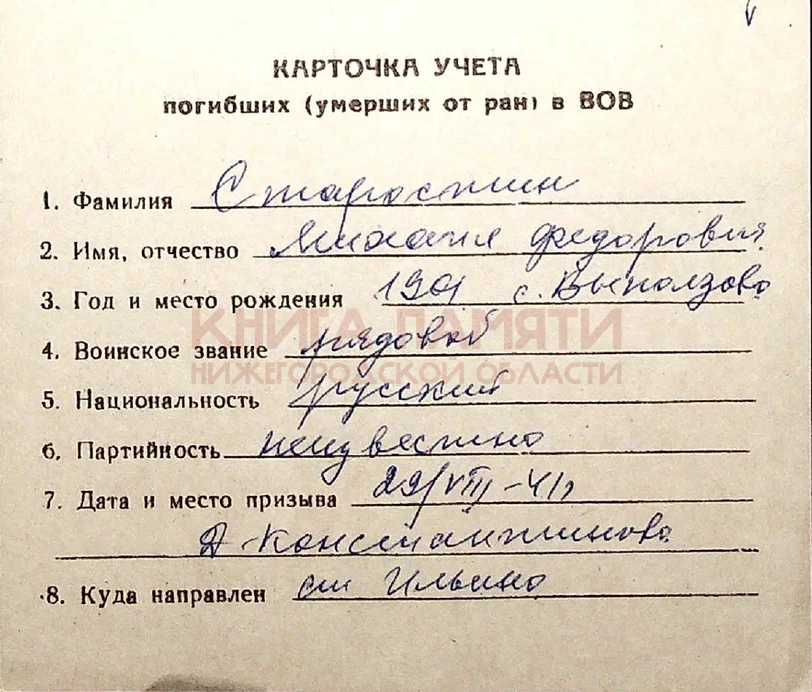 КАРТОЧКА УЧЕТА
погибших (умерших от ран) в ВОВ
1. Фамилия Старостин
2. Имя, отчество Михаил Федорович
3. Год и место рождения 1901 с. Выползово
КНИГА ПАМЯТИ
4. Воинское звание рядовой
НИЖЕГОРОДСКОЙ ОБЛАСТИ
5. Национальность русский
6. Партийность неизвестно
7. Дата и место призыва 29/VIII-41г
Д-Константиново
8. Куда направлен ст Ильино